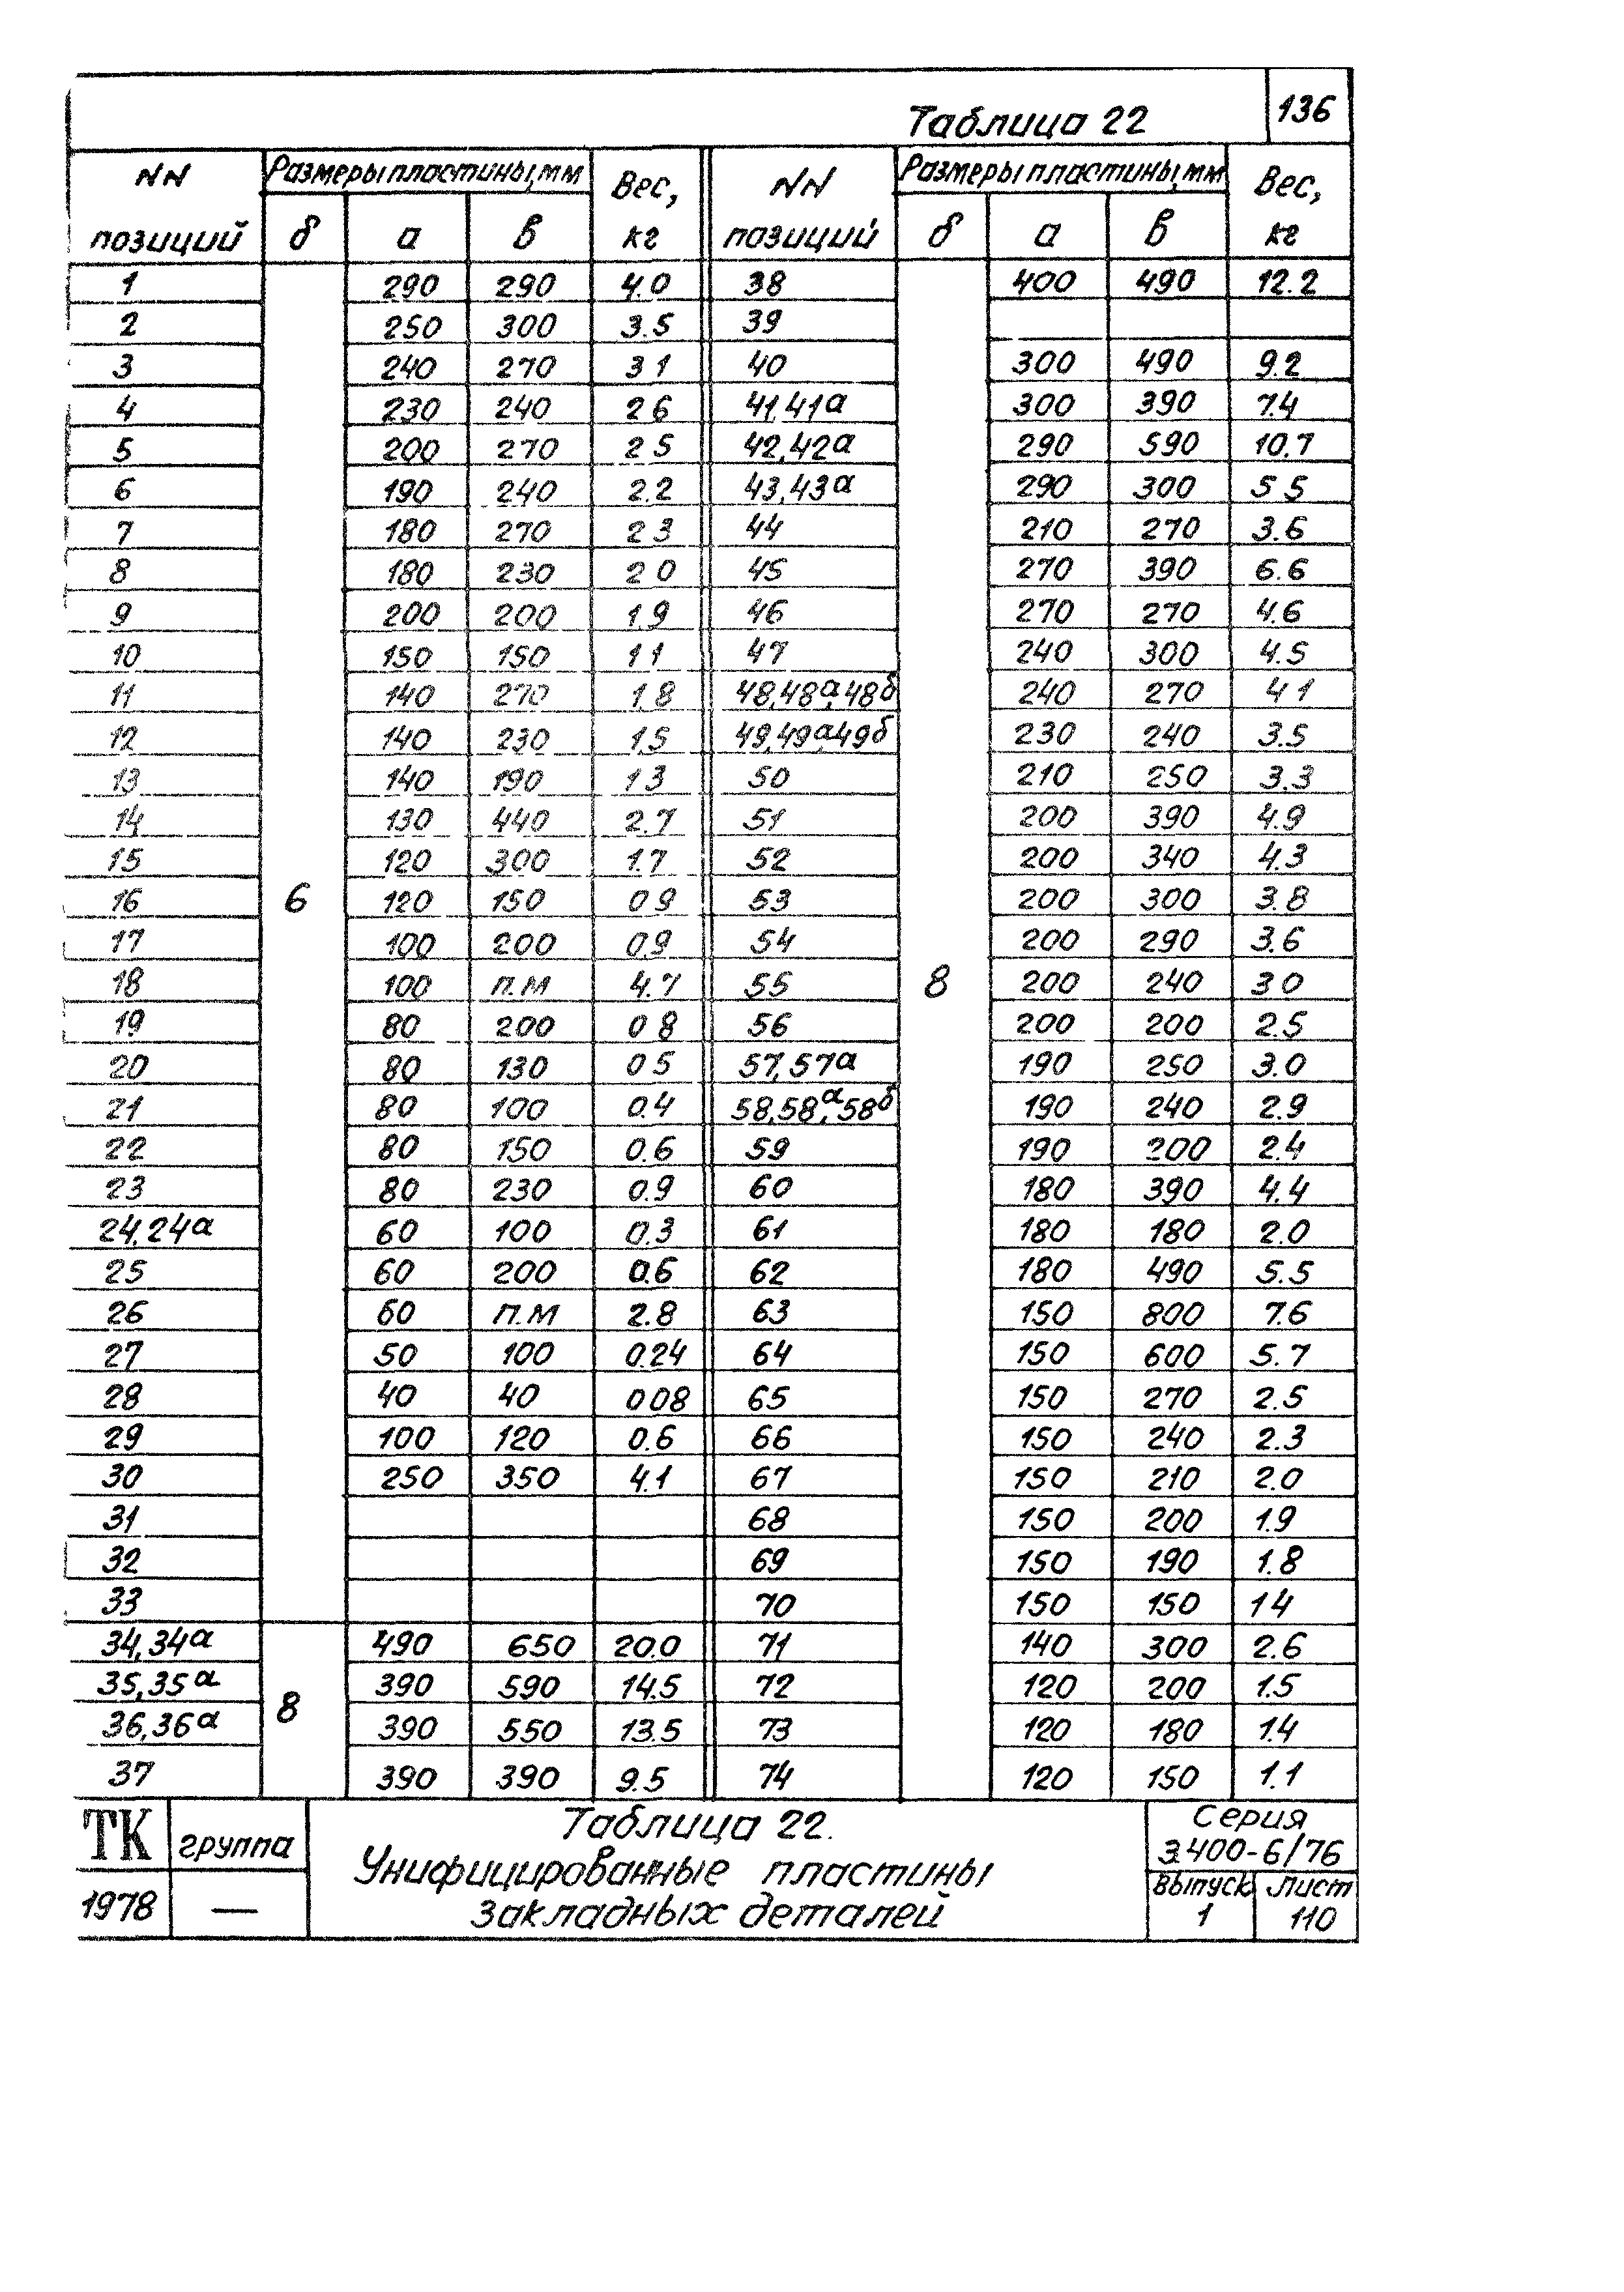 Таблица 22
136
NN позиций | Размеры пластины, мм | Вес, кг | NN позиций | Размеры пластины, мм | Вес, кг
δ | а | в | δ | а | в
1 290 290 4.0 38 400 490 12.2
2 250 300 3.5 39
3 240 270 3 1 40 300 490 9.2
4 230 240 2 6 41,41а 300 390 7.4
5 200 270 2 5 42,42а 290 590 10.7
6 190 240 2.2 43,43а 290 300 5 5
7 180 270 2 3 44 210 270 3.6
8 180 230 2 0 45 270 390 6.6
9 200 200 1.9 46 270 270 4.6
10 150 150 1 1 47 240 300 4.5
11 140 270 1.8 48,48а,48б 240 270 4 1
12 140 230 1.5 49,49а,49б 230 240 3.5
13 140 190 1 3 50 210 250 3.3
14 130 440 2.7 51 200 390 4.9
15 120 300 1.7 52 200 340 4.3
16 6 120 150 0 9 53 200 300 3.8
17 100 200 0.9 54 200 290 3.6
18 100 п.м 4.7 55 8 200 240 3 0
19 80 200 0 8 56 200 200 2.5
20 80 130 0 5 57,57а 190 250 3.0
21 80 100 0.4 58,58а,58б 190 240 2.9
22 80 150 0.6 59 190 200 2.4
23 80 230 0.9 60 180 390 4.4
24,24а 60 100 0.3 61 180 180 2.0
25 60 200 0.6 62 180 490 5.5
26 60 п.м 2.8 63 150 800 7.6
27 50 100 0.24 64 150 600 5.7
28 40 40 0 08 65 150 270 2.5
29 100 120 0.6 66 150 240 2.3
30 250 350 4.1 67 150 210 2.0
31 68 150 200 1.9
32 69 150 190 1.8
33 70 150 150 1 4
34,34а 490 650 20.0 71 140 300 2.6
35,35а 390 590 14.5 72 120 200 1.5
36,36а 8 390 550 13.5 73 120 180 1.4
37 390 390 9.5 74 120 150 1.1
ТК
группа
1978
—
Таблица 22.
Унифицированные пластины
закладных деталей
Серия
3.400-6/76
Выпуск Лист
1 110